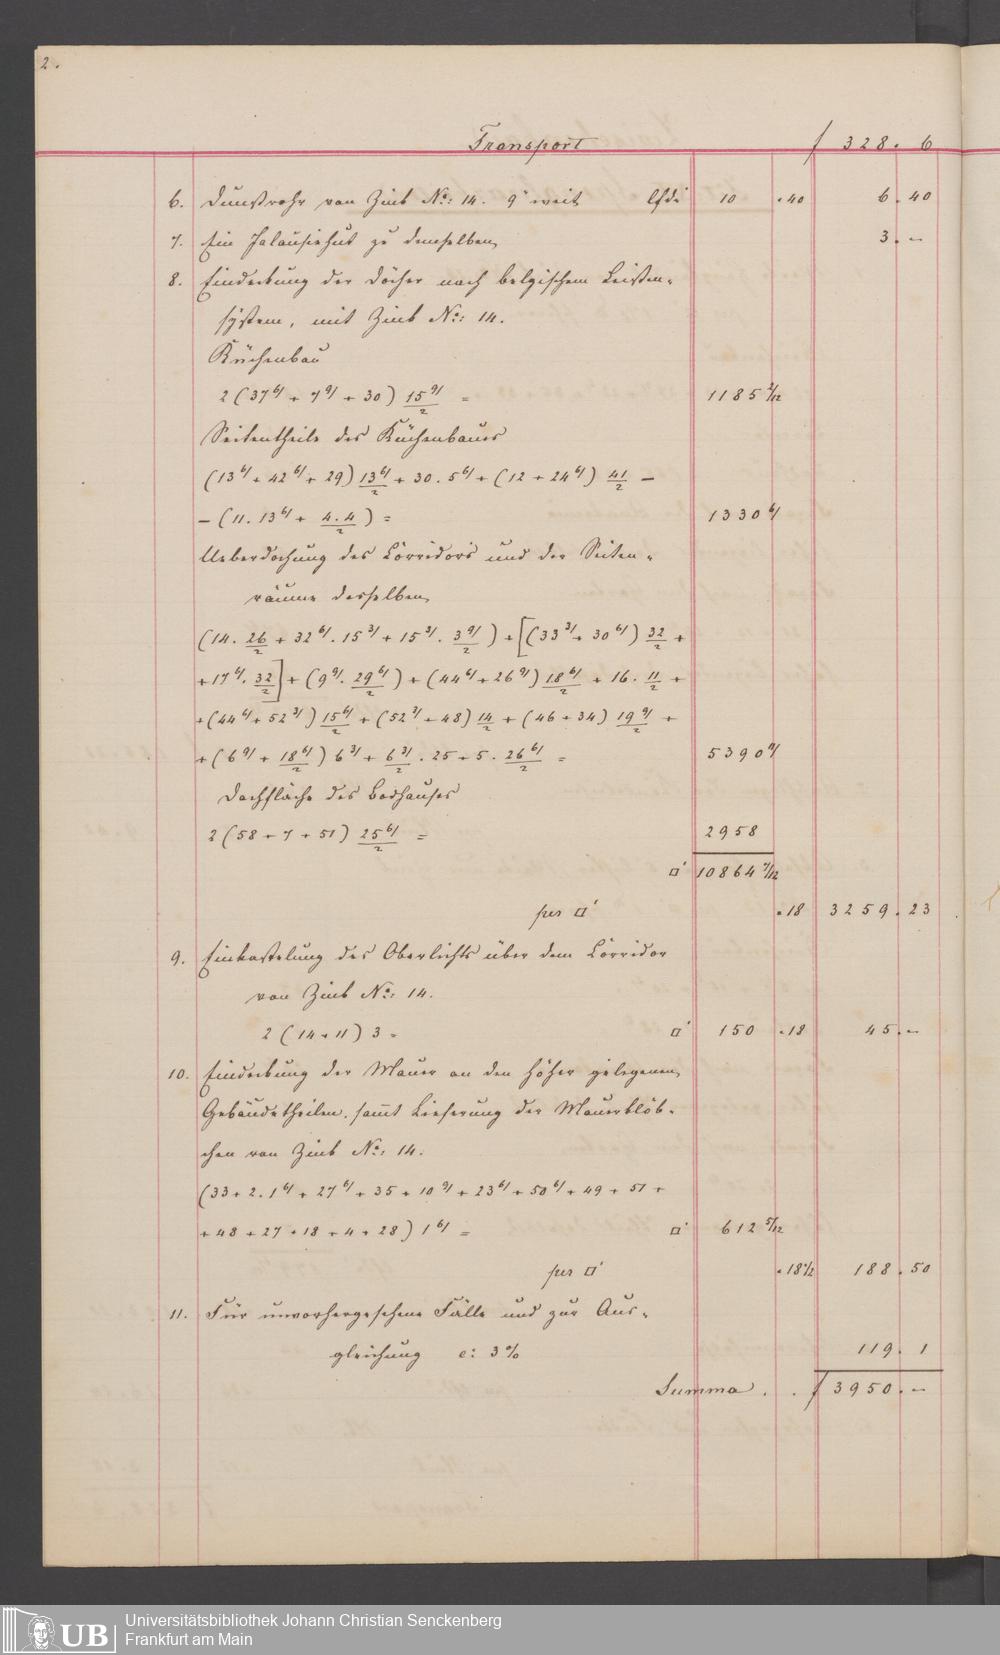 2.
Transport f 328. 6
6. Dunstrohr von Zink No: 14. 9" weit lfd' 10 .40 6. 40
7. Ein Jalousiehut zu demselben 3. –
8. Eindeckung der Dächer nach belgischem Leisten-
system, mit Zink No: 14.
Küchenbau
2 (37 6/ + 7 9/ + 30) 15 9/ / 2 = 1185 2/12
Seitentheile des Küchenbaues
(13 6/ + 42 6/ + 29) 13 6/ / 2 + 30 . 5 6/ + (12 + 24 6/) 41/2 –
– (11 . 13 6/ + 4.4/2) = 1330 6/
Ueberdachung des Corridors und der Seiten-
räume desselben
(14 . 26/2 + 32 6/ . 15 3/ + 15 3/ . 3 9/ / 2) + [(33 3/ + 30 6/) 32/2 +
+ 17 6/ . 32/2] + (9 9/ . 29 6/ / 2) + (44 6/ + 26 9/) 18 6/ / 2 + 16 . 11/2 +
+ (44 6/ + 52 3/) 15 6/ / 2 + (52 3/ + 48) 14/2 + (46 + 34) 19 9/ / 2 +
+ (6 9/ + 18 6/ / 2) 6 3/ + 6 3/ / 2 . 25 + 5 . 26 6/ / 2 = 5390 11/
Dachfläche des Badhauses
2 (58 + 7 + 51) 25 6/ / 2 = 2958
□' 10864 7/12
per □' .18 3259. 23
9. Einkastelung des Oberlichts über dem Corridor
von Zink No: 14.
2 (14 + 11) 3 = □' 150 .18 45. –
10. Eindeckung der Mauer an den höher gelegenen
Gebäudetheilen, sammt Lieferung der Mauerklöb-
chen von Zink No: 14.
(33 + 2 . 1 6/ + 27 6/ + 35 + 10 9/ + 23 6/ + 50 6/ + 49 + 51 +
+ 48 + 27 + 18 + 4 + 28) 1 6/ = □' 612 5/12
per □' .18 1/2 188. 50
11. Für unvorhergesehene Fälle und zur Aus-
gleichung c: 3 % 119. 1
Summa . . f 3950. –
UB
Universitätsbibliothek Johann Christian Senckenberg
Frankfurt am Main